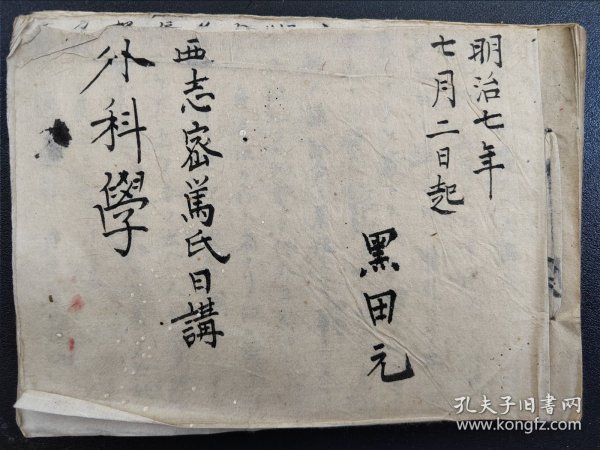 明治七年
七月二日起
黑田元
亜志密篤氏日講
外科學
孔夫子旧书网
www.kongfz.com